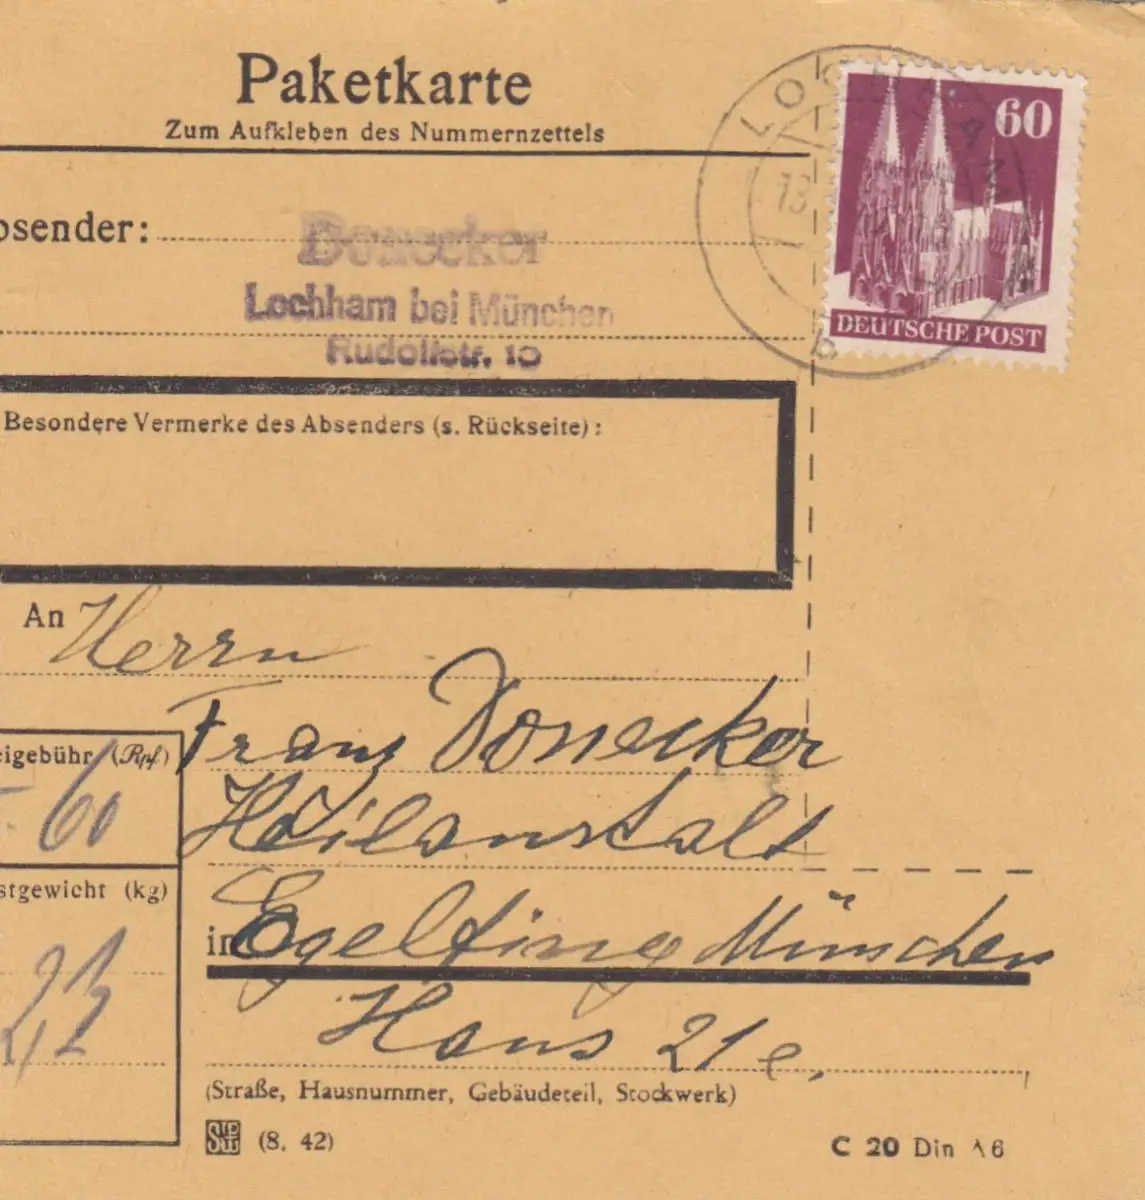 Paketkarte
Zum Aufkleben des Nummernzettels
LOCHHAM
13.
b
60
DEUTSCHE POST
bsender:
Donecker
Lochham bei München
Rudolfstr. 10
Besondere Vermerke des Absenders (s. Rückseite):
An Herrn
Franz Donecker
Heilanstalt
in Egelfing München
Haus 21 e,
(Straße, Hausnummer, Gebäudeteil, Stockwerk)
eigebühr (Rpf)
60
stgewicht (kg)
(8. 42)
C 20 Din A6